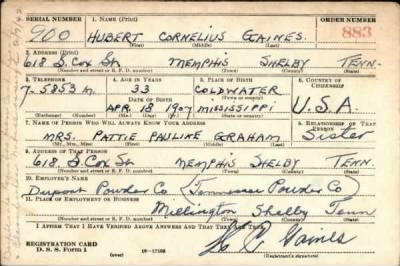 SERIAL NUMBER 1. NAME (Print) ORDER NUMBER
900 HUBERT CORNELIUS GAINES. 883
(First) (Middle) (Last)
2. ADDRESS (Print)
618 S. COX St. MEMPHIS SHELBY TENN.
(Number and street or R. F. D. number) (Town) (County) (State)
3. TELEPHONE 4. AGE IN YEARS 5. PLACE OF BIRTH 6. COUNTRY OF CITIZENSHIP
7-5853 M. 33 COLDWATER U.S.A.
DATE OF BIRTH (Town or county)
APR. 18 1907 MISSISSIPPI
(Exchange) (Number) (Mo.) (Day) (Yr.) (State or country)
7. NAME OF PERSON WHO WILL ALWAYS KNOW YOUR ADDRESS 8. RELATIONSHIP OF THAT PERSON
MRS. PATTIE PAULINE GRAHAM Sister
(Mr., Mrs., Miss) (First) (Middle) (Last)
9. ADDRESS OF THAT PERSON
618. S. Cox St. MEMPHIS SHELBY TENN.
(Number and street or R. F. D. number) (Town) (County) (State)
10. EMPLOYER'S NAME
Dupont Powder Co (Tennessee Powder Co)
11. PLACE OF EMPLOYMENT OR BUSINESS
Millington Shelby Tenn
(Number and street or R. F. D. number) (Town) (County) (State)
I AFFIRM THAT I HAVE VERIFIED ABOVE ANSWERS AND THAT THEY ARE TRUE.
REGISTRATION CARD
D. S. S. Form 1 (over) 16—17105
H C Gaines
(Registrant's signature)